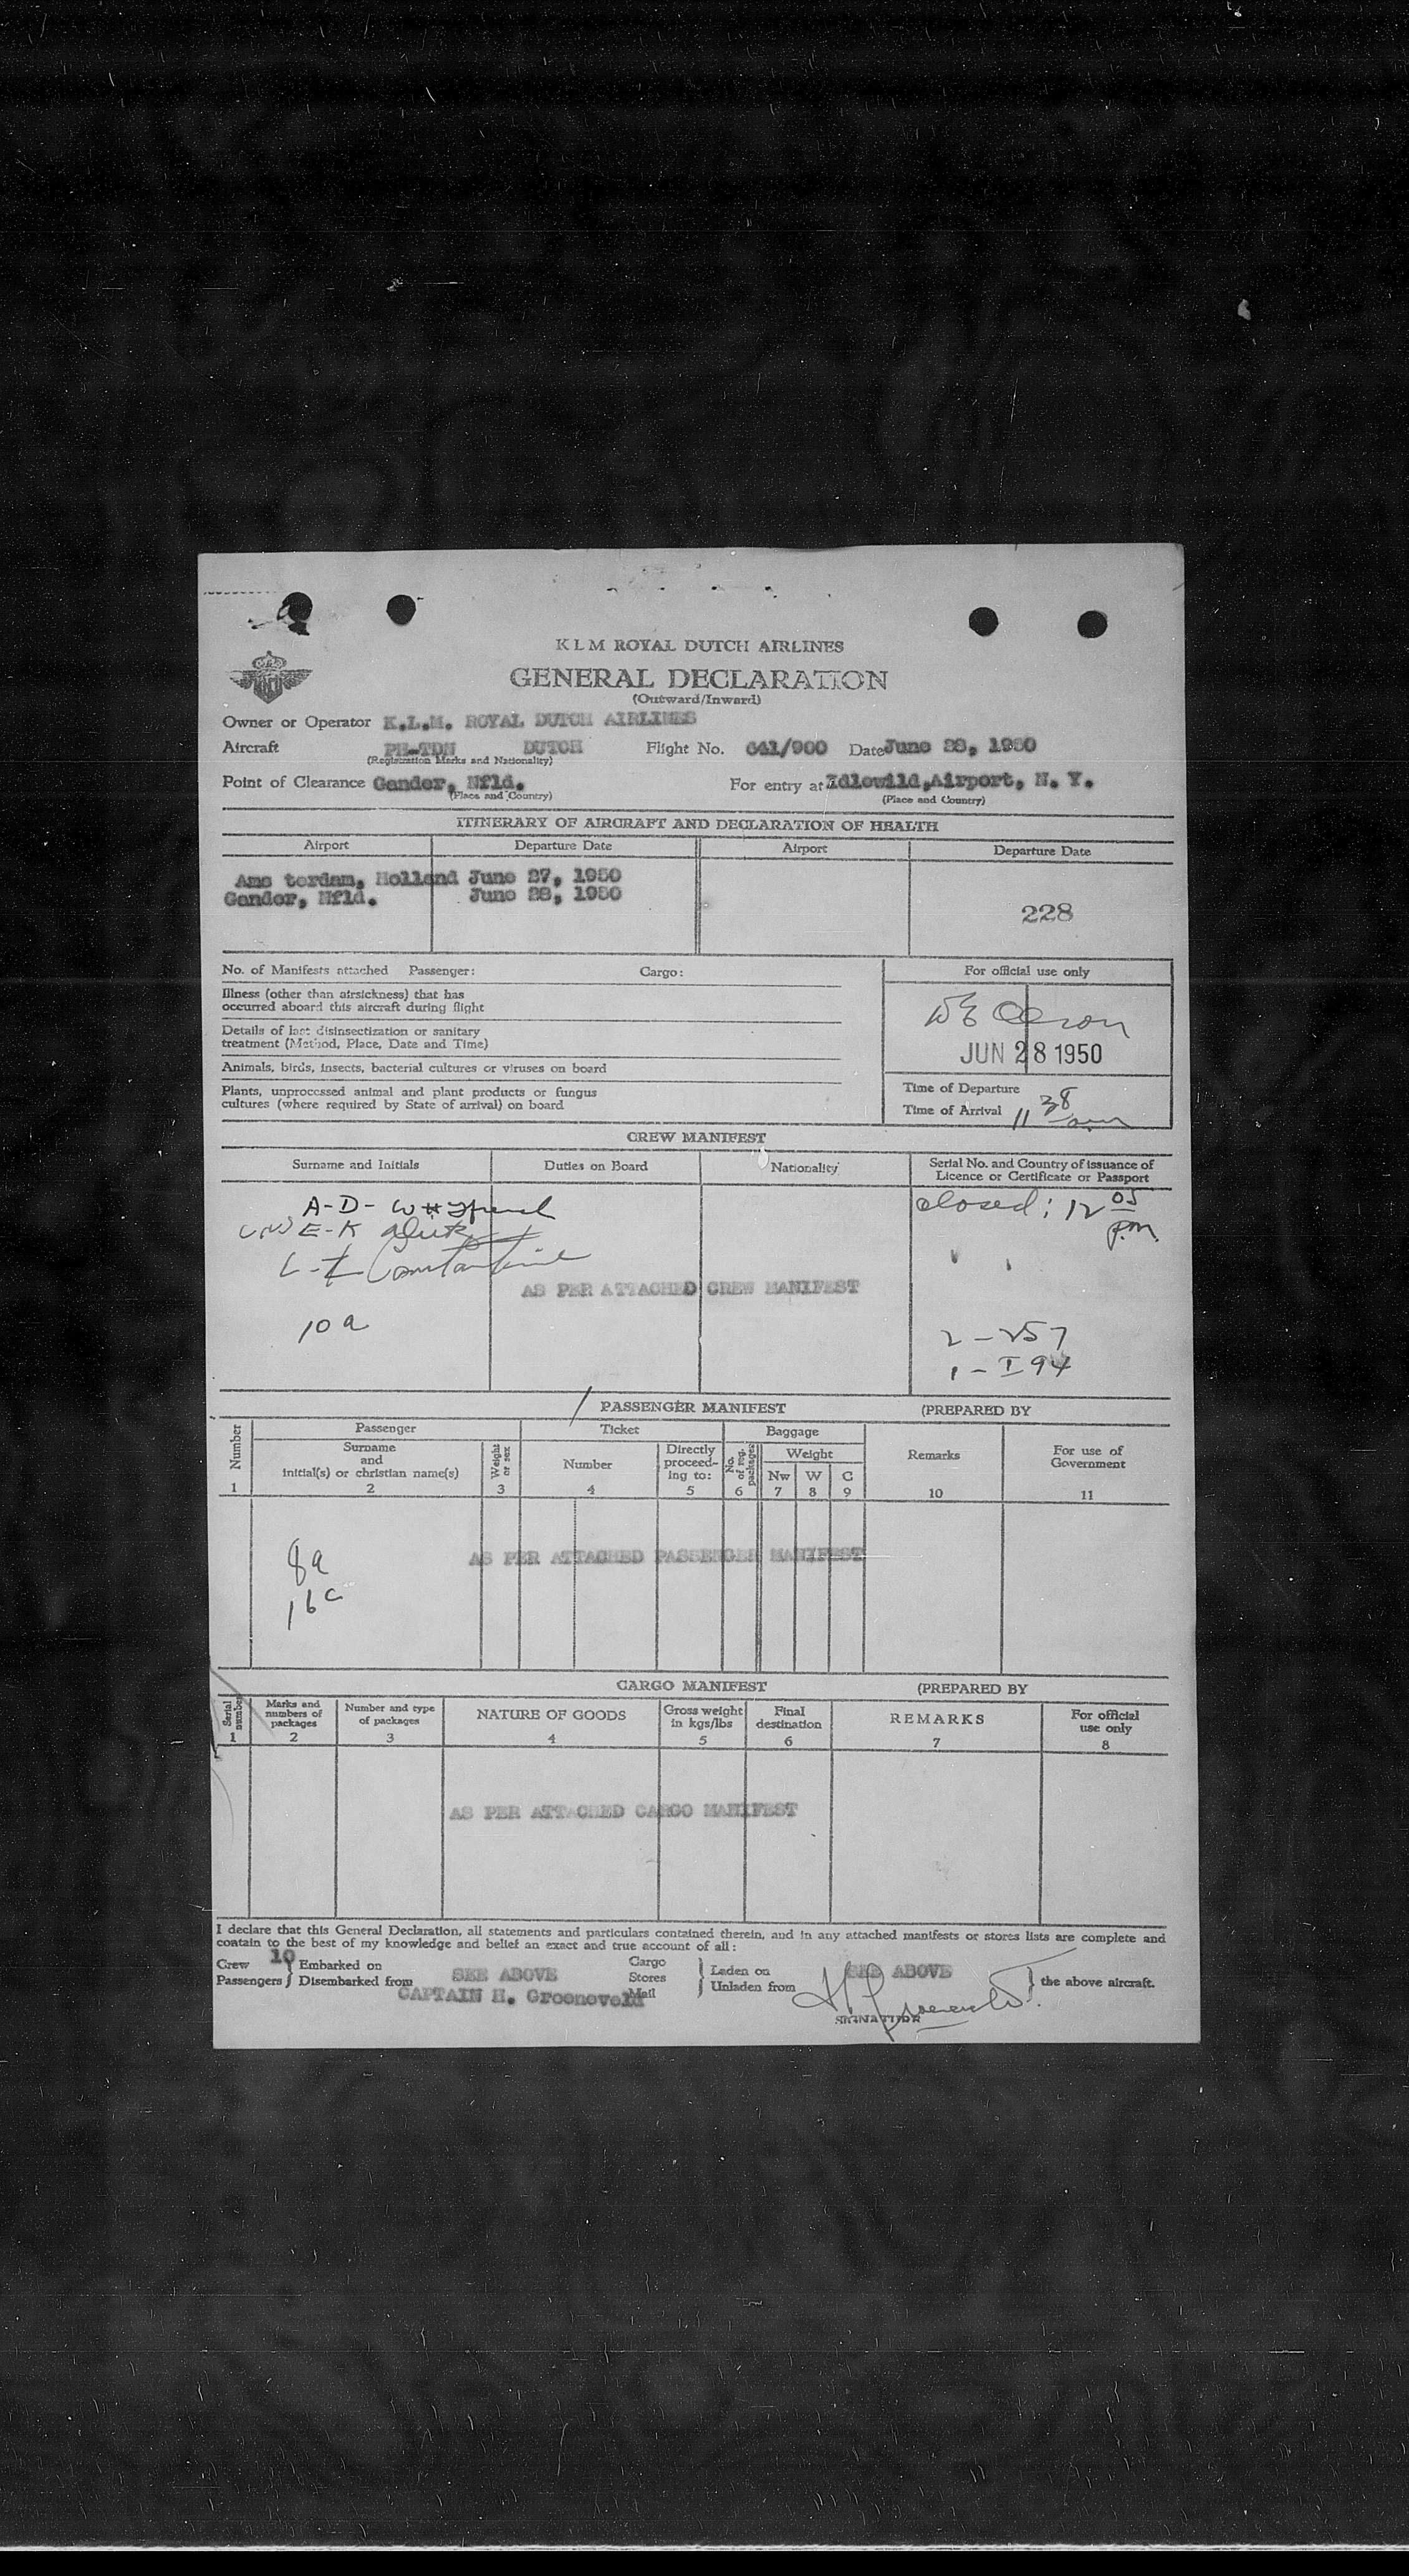 K L M ROYAL DUTCH AIRLINES
GENERAL DECLARATION
(Outward/Inward)
Owner or Operator K.L.M. ROYAL DUTCH AIRLINES
Aircraft PH-TDN DUTCH Flight No. 641/900 Date June 28, 1950
(Registration Marks and Nationality)
Point of Clearance Gander, Nfld. For entry at Idlewild,Airport, N. Y.
(Place and Country) (Place and Country)
ITINERARY OF AIRCRAFT AND DECLARATION OF HEALTH
Airport Departure Date Airport Departure Date
Ams terdam, Holland June 27, 1950
Gander, Nfld. June 28, 1950
228
No. of Manifests attached Passenger: Cargo: For official use only
Illness (other than airsickness) that has
occurred aboard this aircraft during flight
Details of last disinsectization or sanitary
treatment (Method, Place, Date and Time)
JUN 28 1950
Animals, birds, insects, bacterial cultures or viruses on board
Plants, unprocessed animal and plant products or fungus
cultures (where required by State of arrival) on board
Time of Departure
Time of Arrival 11 38 am
CREW MANIFEST
Surname and Initials Duties on Board Nationality Serial No. and Country of issuance of
Licence or Certificate or Passport
A-D- closed; 12 05
E-K p.m.
L-Z Constantine
AS PER ATTACHED CREW MANIFEST
10 a
2 - 257
1 - I 94
PASSENGER MANIFEST (PREPARED BY
Number Passenger Ticket Baggage
Surname
and
initial(s) or christian name(s)
Weight or sex Number Directly
proceed-
ing to:
No. of reg. packages Weight Remarks For use of
Government
Nw W C
1 2 3 4 5 6 7 8 9 10 11
AS PER ATTACHED PASSENGER MANIFEST
8a
16c
CARGO MANIFEST (PREPARED BY
Serial number Marks and
numbers of
packages
Number and type
of packages
NATURE OF GOODS Gross weight
in kgs/lbs
Final
destination
REMARKS For official
use only
1 2 3 4 5 6 7 8
AS PER ATTACHED CARGO MANIFEST
I declare that this General Declaration, all statements and particulars contained therein, and in any attached manifests or stores lists are complete and
contain to the best of my knowledge and belief an exact and true account of all:
Crew 10 Embarked on Cargo Laden on
Passengers Disembarked from SEE ABOVE Stores Unladen from SEE ABOVE the above aircraft.
CAPTAIN H. Groeneveld Mail
SIGNATURE